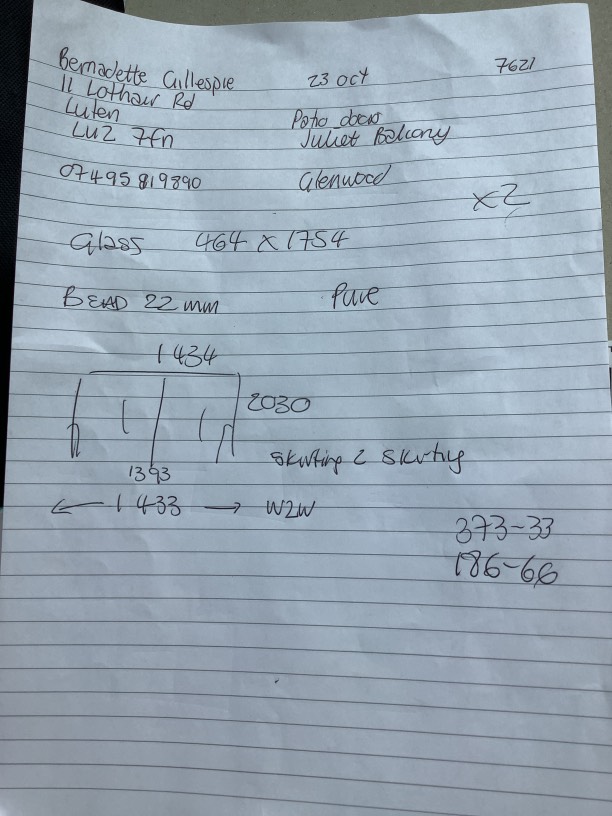 Bernadette Gillespie 23 oct 7621
11 Lothair Rd
Luten Patio doors
LU2 7fn Juliet Balcony
07495 819890 Glenwood
x2
Glass 464 x 1754
BEAD 22 mm Pure
1434
2030
Skirting 2 Skirting
1393
← 1433 → W2W
373-33
186-66